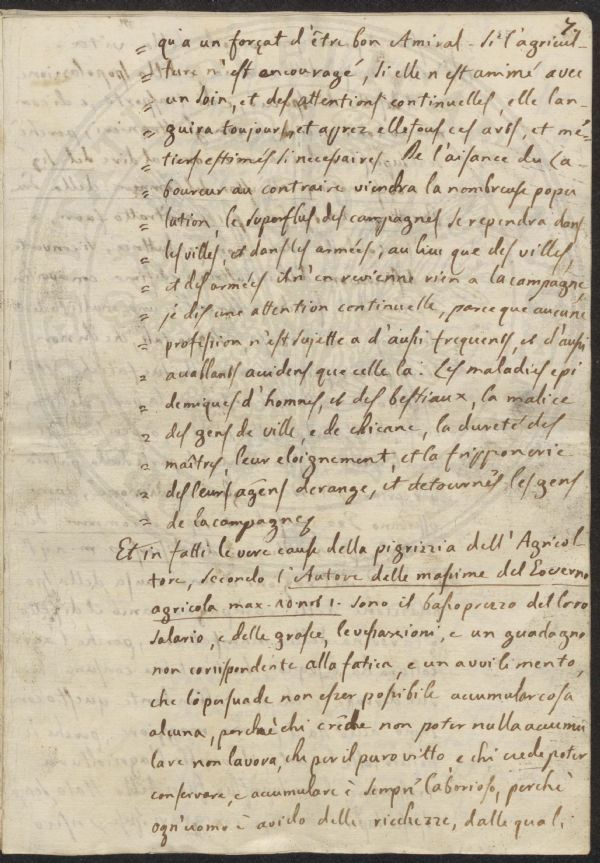 7
= qu'a un forçat d'être bon Amiral - Si l'agricul-
= ture n'est encouragé, si elle n'est animé avec
= un soin, et des attentions continuelles, elle lan-
= guira toujours, et aprez elle tous ces arts, et mé-
= tiers estimés si necessaires. De l'aisance du La-
= boureur au contraire viendra la nombreuse popu
= lation, le superflus des campagnes se rependra dans
= les villes, et dans les armées, au lieu que des villes,
= et des armées il n'en revienne rien a la campagne,
= je dis une attention continuelle, parce que aucune
= profession n'est sujette a d'aussi frequents, et d'aussi
= accablants accidens que celle la: Les maladies epi
= demiques d'hommes, et des bestiaux, la malice
= des gens de ville, e de chicane, la dureté des
= maîtres, leur eloignement, et la fripponerie
= des leurs agens derange, et detournés les gens
= de la campagne
Et in fatti le vere cause della pigrizia dell'Agricol
tore, secondo l'Autore delle massime del Governo
agricola max. sono il basso prezzo del loro
salario, e delle grasce, le vessazioni, e un guadagno
non corrispondente alla fatica, e un avvilimento,
che lo persuade non esser possibile accumular cosa
alcuna, perchè chi crede non poter nulla accumu
lare non lavora, che per il puro vitto e chi crede poter
conservare, e accumulare è sempre laborioso, perchè
ogn'uomo è avido delle ricchezze, dalle quali